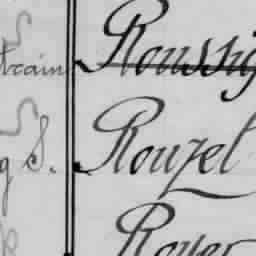 train Roussig
g S. Rouzel
Royer